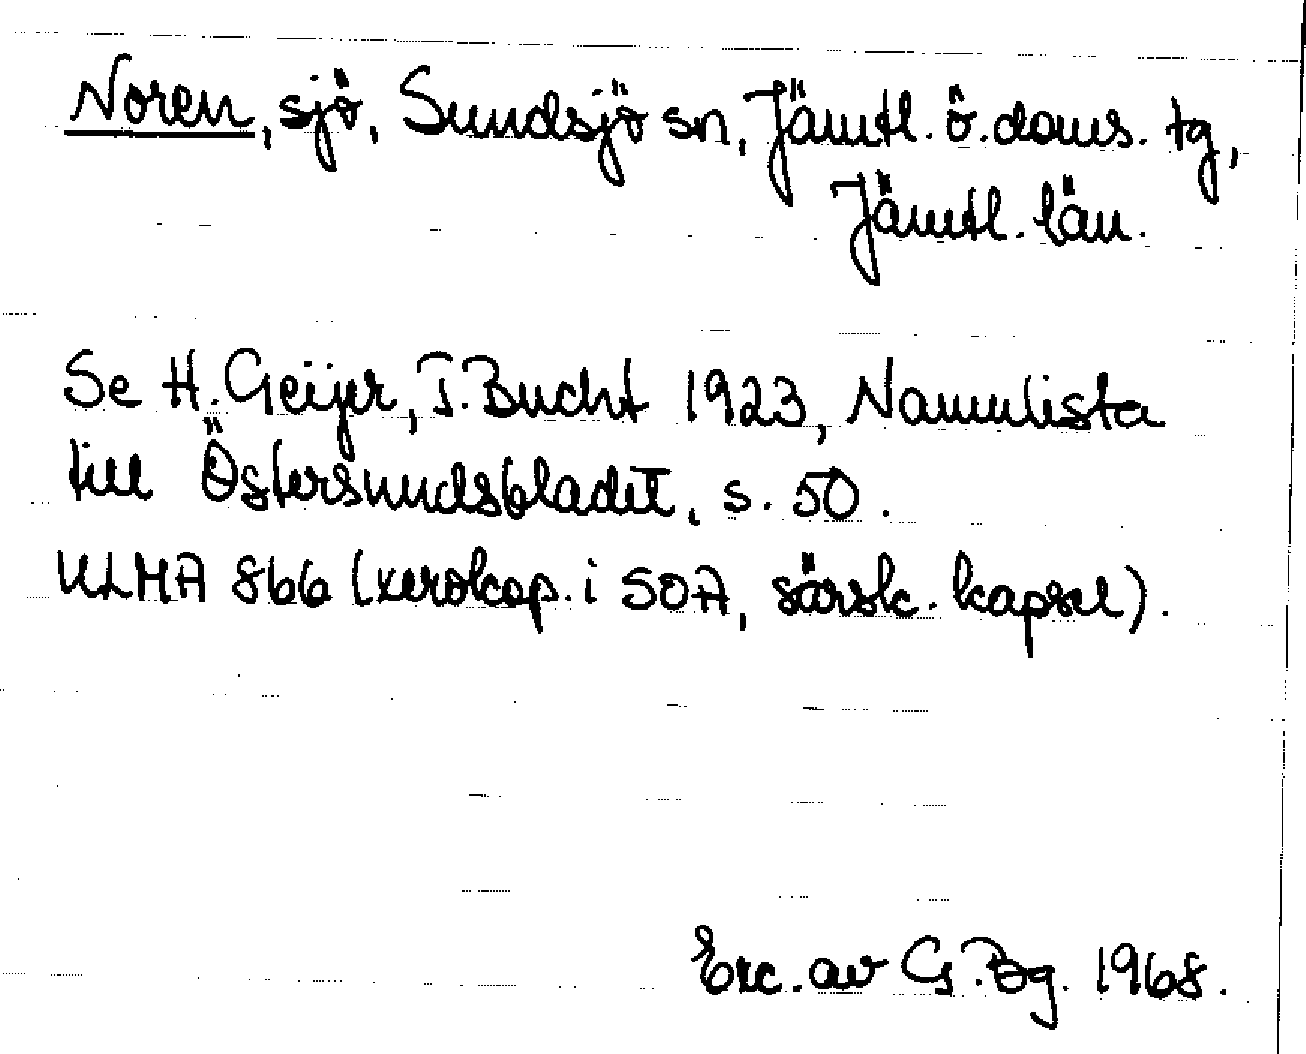 Noren, sjö, Sundsjö sn, Jämtl. ö. doms. tg,
Jämtl. län.
Se H. Geijer, T. Bucht 1923, Namnlista
till Östersundsbladet, s. 50.
ULMA 866 (xerokop. i SOA, särsk. kapsel).
Exc. av G. Bg. 1968.